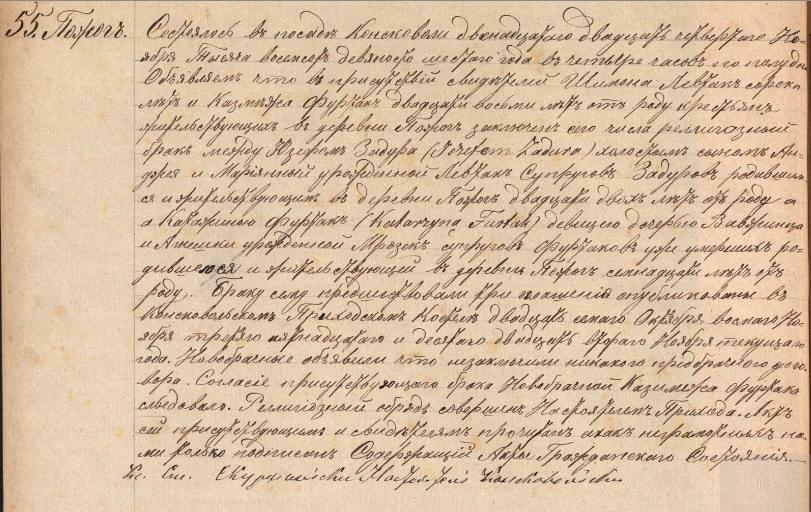 55. Пожогъ. Состоялось въ посадѣ Консковоли двѣнадцатаго двадцать четвертаго Но-
ября тысяча восемсотъ девяносто шестаго года въ четыре часовъ по полудни
Объявляемъ что въ присутствіи свидѣтелей Шимона Левтакъ сорока
лѣтъ и Казмѣжа Фуртакъ двадцати восьми лѣтъ отъ роду крестьянъ
жительствующихъ въ деревни Пожогъ заключенъ сего числа религіозный
бракъ между Юзефомъ Задура (Józefem Zadura) холостымъ сыномъ Ан-
джея и Маріянны урожденной Левтакъ супруговъ Задуровъ родившим-
ся и жительствующимъ въ деревни Пожогъ двадцати двохъ лѣтъ отъ роду а
а Катажиною Фуртакъ (Katarzyna Furtak) девицею дочерью Вавжинца
и Агнешки урожденной Мрозекъ супруговъ Фуртаковъ уже умершихъ ро-
дившеюся и жительствующей въ деревни Пожогъ семнадцати лѣтъ отъ
роду. Браку сему предшествовали три оглашенія опубликованы въ
Консковольскомъ Приходскомъ Костелѣ двадцать Октября, восмаго Но-
ября третяго пятнадцатаго и десятаго двадцать втораго Ноября текущаго
года. Новобрачные объявили что незаключили никакого предбрачного дого-
вора. Согласіе присутствующаго брака Новобрачной Казимежа Фуртака
следовало. Религіозный обрядъ совершенъ Настоятелемъ Прихода. Актъ
сей присутствующимъ и свидѣтелямъ прочитанъ а какъ неграмотныхъ на-
ми только подписанъ Содержащій Акты Гражданскаго Состоянія.
Кс. Настоятель Консковольскій